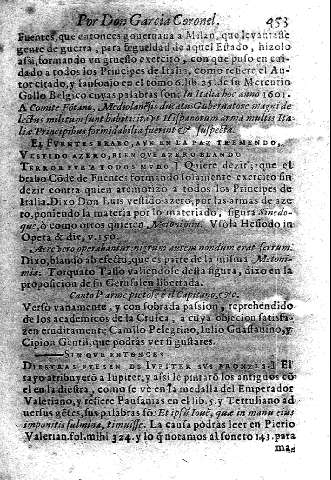 Por Don Garcia Coronel. 453
Fuentes, que entonces gouernaua a Milan, que leuantasse
gente de guerra, para seguridad de aquel Estado, hizolo
assi, formando vn gruesso exercito, con que puso en cui-
dado a todos los Principes de Italia, como refiere el Au-
tor citado, y Iansonio en el tomo 6. lib. 25. de su Mercurio
Gallo Belgico cuyas palabras son: In Italia hoc anno 1601.
A Comite Fotano, Mediolanesis ducatus Gubernatore magni de-
lectus militum sunt habiti: ita vt Hispanorum arma multis Ita
lia Principibus formidabilia fuerint & suspecta.
EL FUENTES BRABO, AVN EN LA PAZ TREMENDO,
VESTIDO AZERO, BIEN QUE AZERO BLANDO
TERROR SERA TODOS MUDO] Quiere dezir: que el
brabo Code de Fuentes formando solamente exercito sin
dezir contra quien atemorizò a todos los Principes de
Italia. Dixo Don Luis vestido azero, por las armas de aze-
ro, poniendo la materia por lo materiado, figura Sinedo-
que, ò como otros quieren Metonimia. Visola Hesiodo in
Opera & die, v. 150.
Aere vero operabantur nigrum autem nondum erat ferrum.
Dixo, blando ab efectu, que es parte de la misma Metoni-
mia. Torquato Tasso valiendose desta figura, dixo en la
proposicion de su Gerusalen libertada.
Canto l'arme pietose e il Capitano, &c.
Verso vanamente, y con sobrada passion, reprehendido
de los academicos de la Crusca, a cuya objecion satisfa-
zen eruditamente, Camilo Pelegrino, Iulio Guastauino, y
Cipion Gentil, que podràs ver si gustares.
SIN QUE ENTONCES
DIESTRAS FUESEN DE IUPITER SUS BRONZES.] El
rayo atribuyerõ a Iupiter, y assi le pintarõ los antiguos cõ
el en la diestra, como se ve en la medalla del Emperador
Valeriano, y refiere Pausanias en el lib. 5. y Tertuliano ad
uersus gẽtes, sus palabras sõ: Et ipsũ Iouẽ, quæ in manu eius
imponitis fulmina, timuisse. La causa podràs leer en Pierio
Valerian. fol. mihi 324. y lo q̃ notamos al soneto 143. para
mas